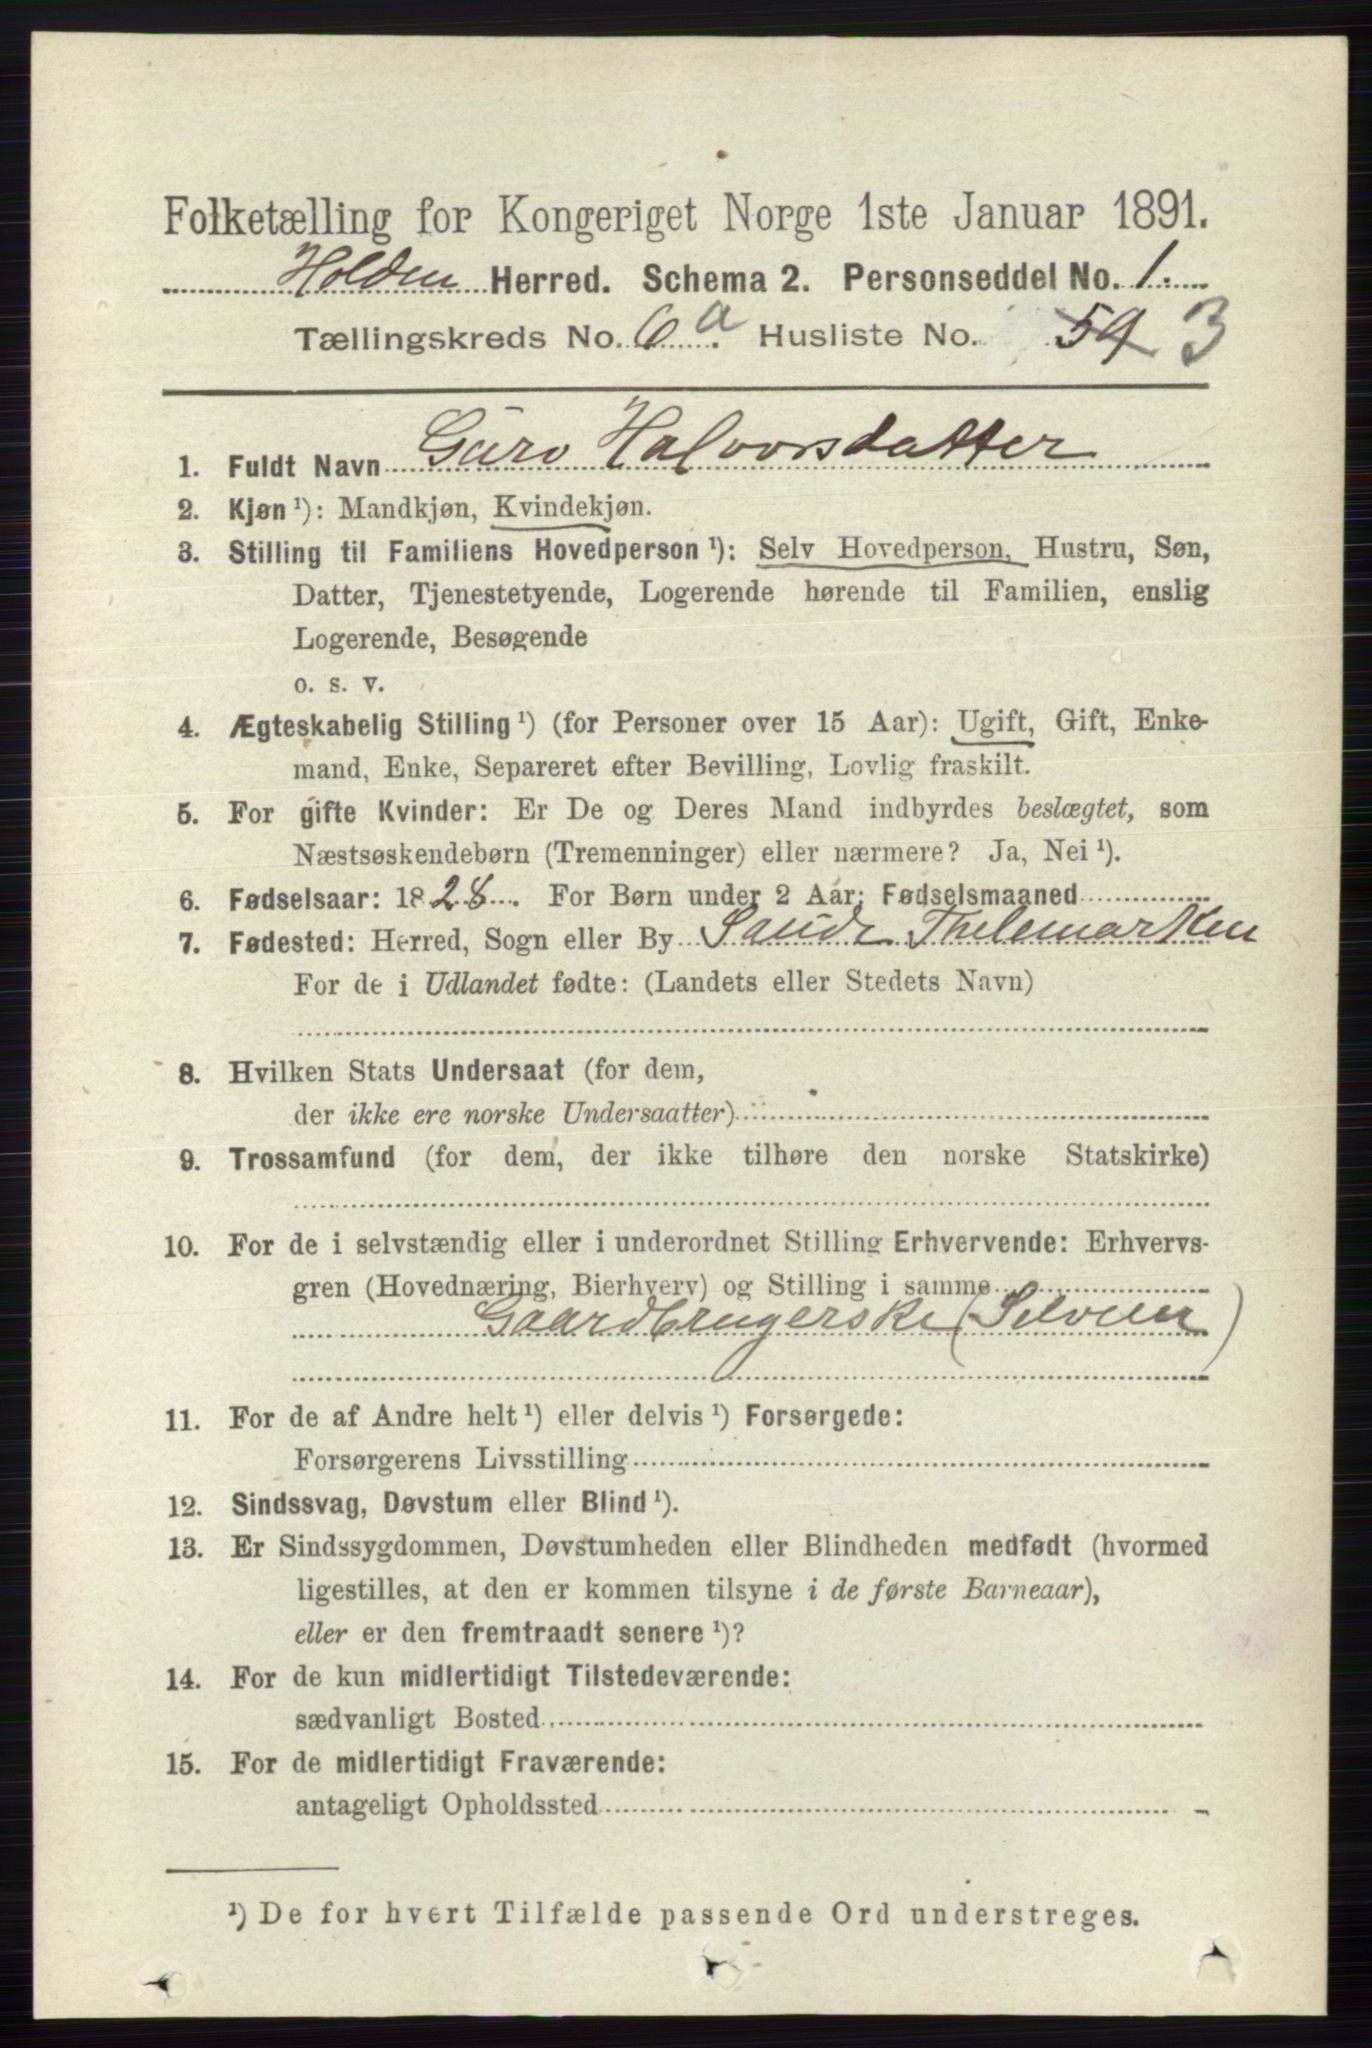 Folketælling for Kongeriget Norge 1ste Januar 1891.
Holden Herred. Schema 2. Personseddel No. 1.
Tællingskreds No. 6 a. Husliste No. 54 3
1. Fuldt Navn Guro Halvorsdatter
2. Kjøn ¹): Mandkjøn, Kvindekjøn.
3. Stilling til Familiens Hovedperson ¹): Selv Hovedperson, Hustru, Søn,
Datter, Tjenestetyende, Logerende hørende til Familien, enslig
Logerende, Besøgende
o. s. v.
4. Ægteskabelig Stilling ¹) (for Personer over 15 Aar): Ugift, Gift, Enke-
mand, Enke, Separeret efter Bevilling, Lovlig fraskilt.
5. For gifte Kvinder: Er De og Deres Mand indbyrdes beslægtet, som
Næstsøskendebørn (Tremenninger) eller nærmere? Ja, Nei ¹).
6. Fødselsaar: 1828. For Børn under 2 Aar: Fødselsmaaned
7. Fødested: Herred, Sogn eller By Saude Thelemarken
For de i Udlandet fødte: (Landets eller Stedets Navn)
8. Hvilken Stats Undersaat (for dem,
der ikke ere norske Undersaatter)
9. Trossamfund (for dem, der ikke tilhøre den norske Statskirke)
10. For de i selvstændig eller i underordnet Stilling Erhvervende: Erhvervs-
gren (Hovednæring, Bierhverv) og Stilling i samme
Gaardbrugerske (Selveier)
11. For de af Andre helt ¹) eller delvis ¹) Forsørgede:
Forsørgerens Livsstilling
12. Sindssvag, Døvstum eller Blind ¹).
13. Er Sindssygdommen, Døvstumheden eller Blindheden medfødt (hvormed
ligestilles, at den er kommen tilsyne i de første Barneaar),
eller er den fremtraadt senere ¹)?
14. For de kun midlertidigt Tilstedeværende:
sædvanligt Bosted
15. For de midlertidigt Fraværende:
antageligt Opholdssted
¹) De for hvert Tilfælde passende Ord understreges.